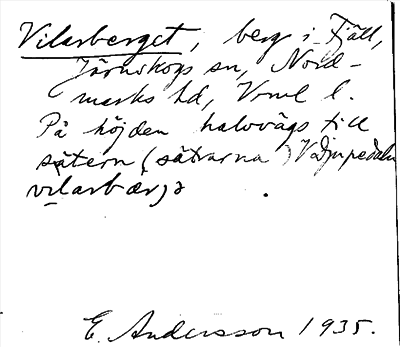 Vilarberget, berg i Fjäll,
Järnskogs sn, Nord-
marks hd, Vrml l.
På höjden halvvägs till
sätern (sätrarna) V Djupedalen
vilarbærjə
E. Andersson 1935.